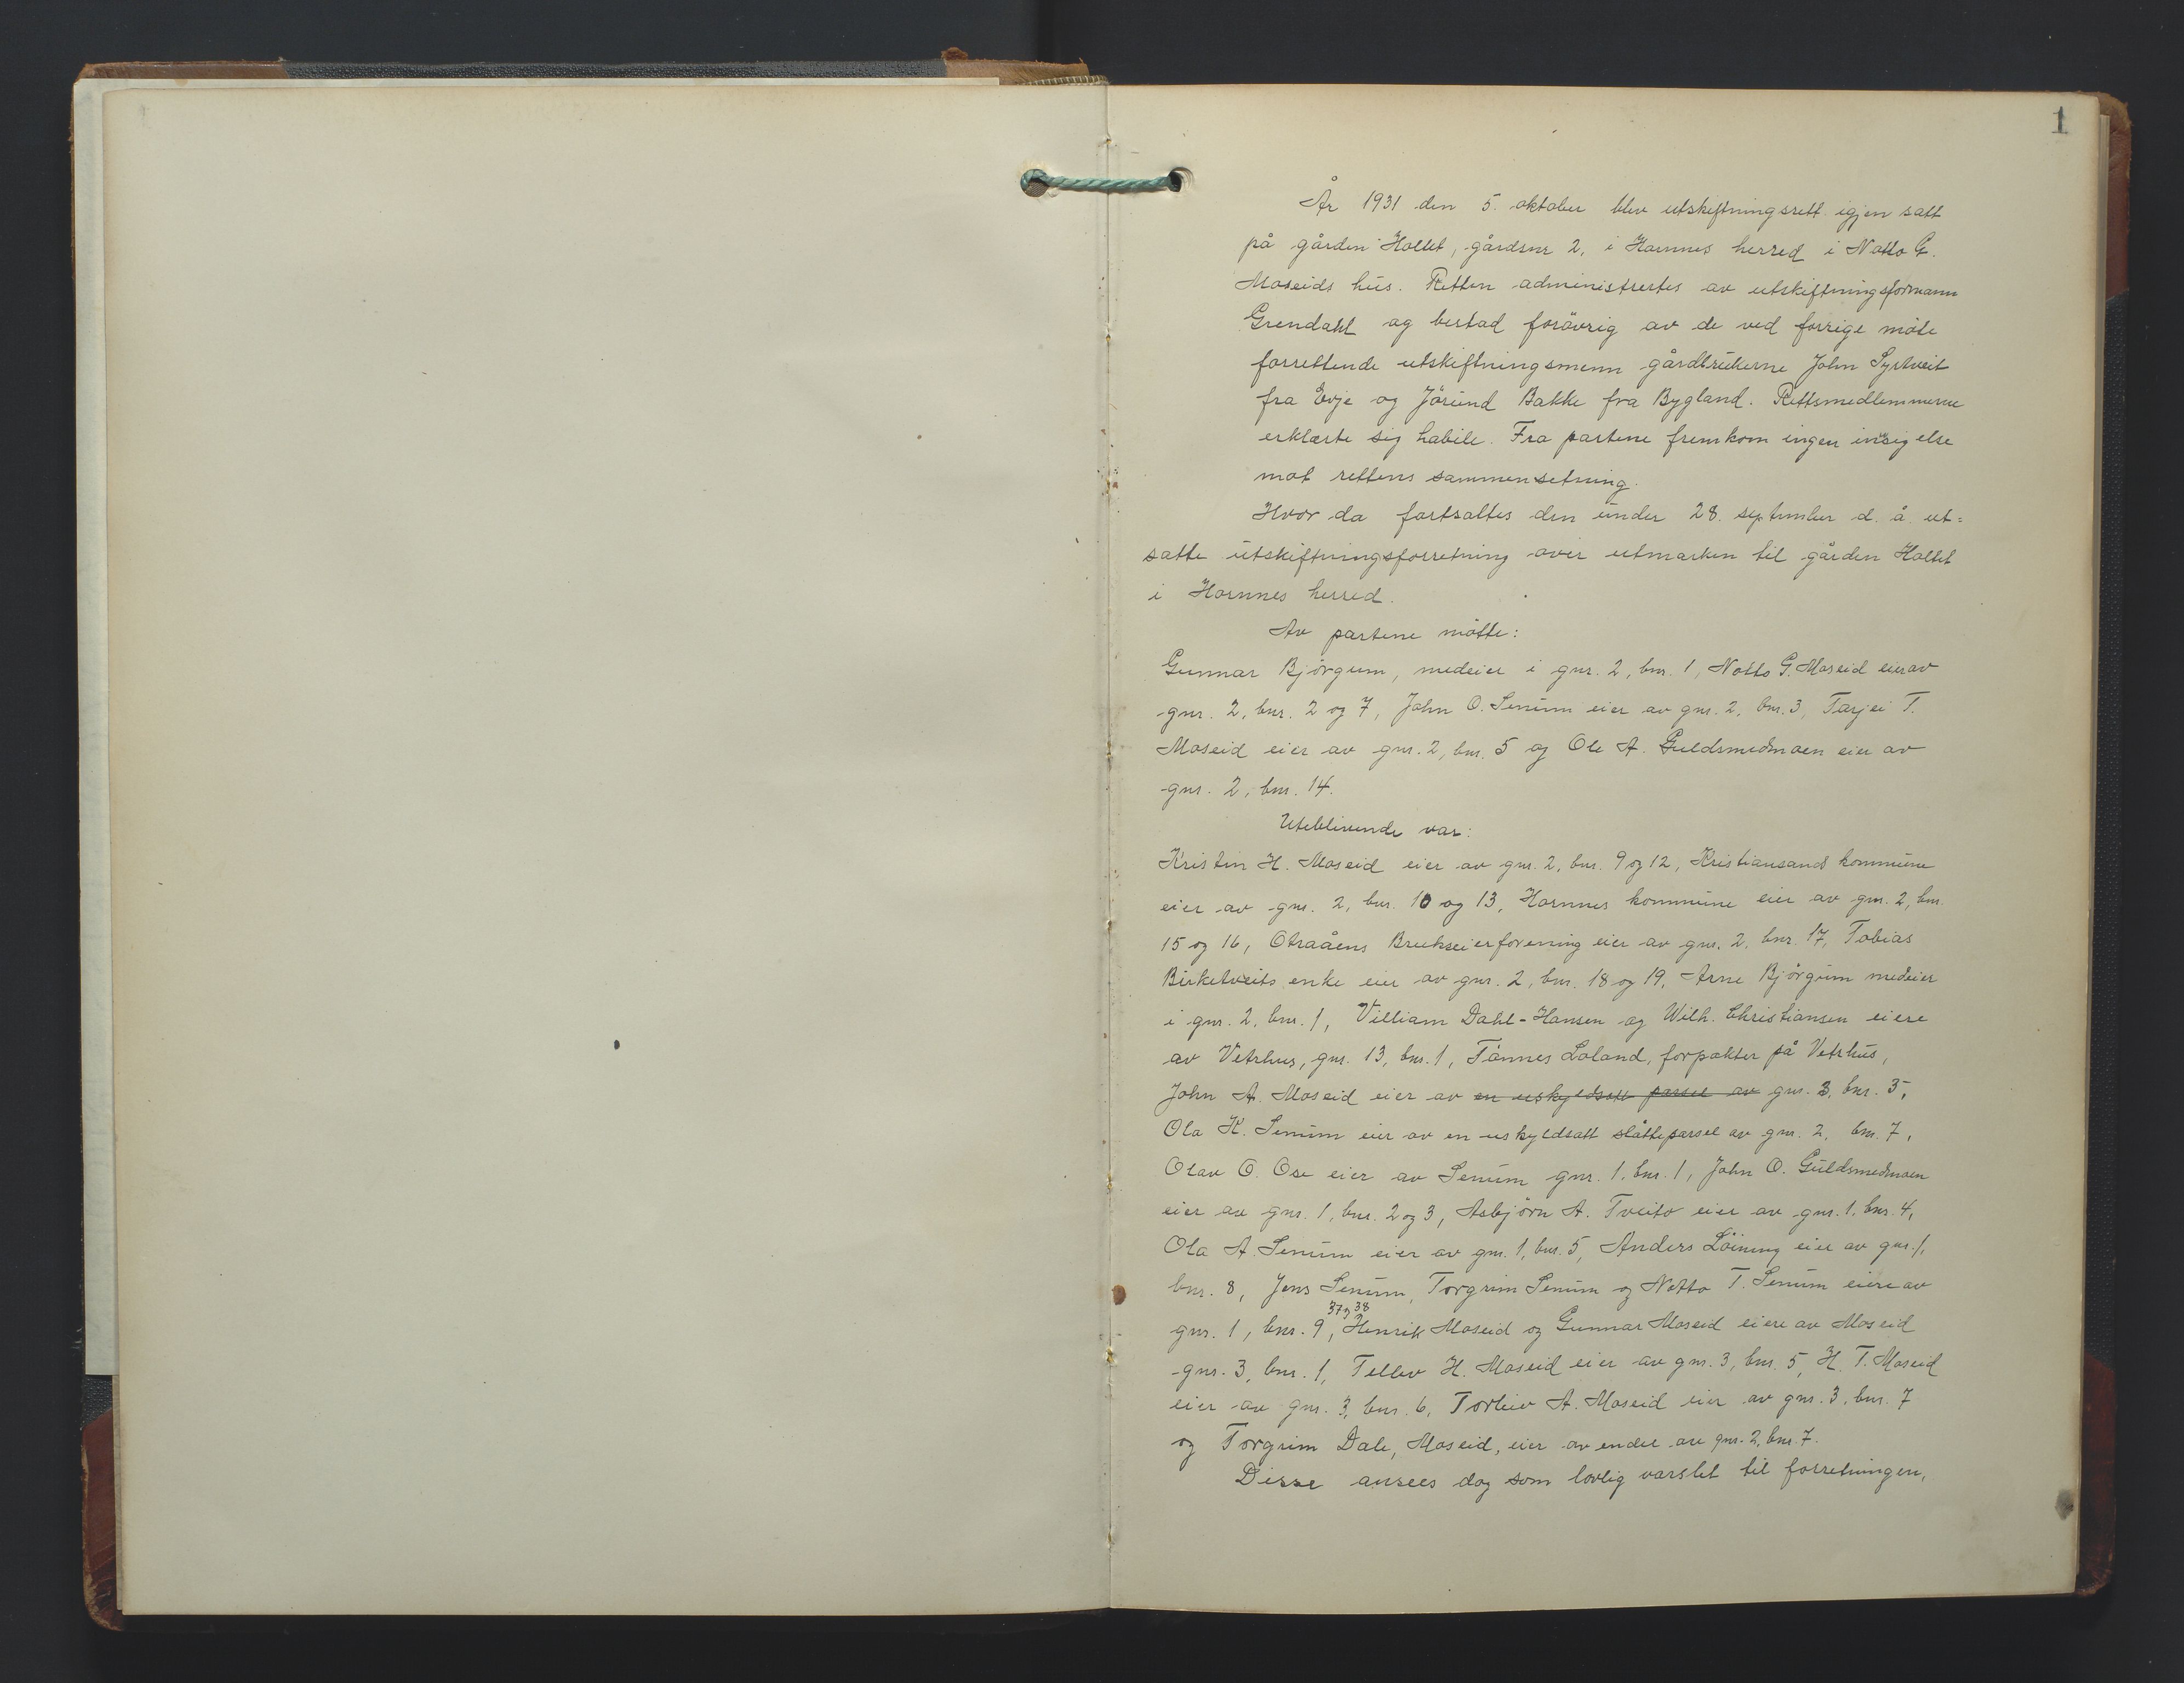 1
År 1931 den 5. oktober blev utskiftningsrett igjen satt
på gården Holtet, gårdsnr 2, i Hornnes herred i Notto G.
Moseids hus. Retten administrertes av utskiftningsformann
Grendahl og bestod forövrig av de ved forrige möte
forrettende utskiftningsmenn gårdbrukerne John Syrtveit
fra Evje og Jörund Bakke fra Bygland. Rettsmedlemmerne
erklærte sig habile. Fra partene fremkom ingen insigelse
mot rettens sammensetning.
Hvor da fortsattes den under 28. september d. å. ut=
satte utskiftningsforretning over utmarken til gården Holtet
i Hornnes herred.
Av partene mötte:
Gunnar Björgum, medeier i gnr. 2, bnr. 1, Notto G. Moseid eier av
gnr. 2, bnr. 2 og 7, John O. Senum eier av gnr. 2, bnr. 3, Tarjei T.
Moseid eier av gnr. 2, bnr. 5 og Ole A. Guldsmedmoen eier av
gnr. 2, bnr. 14.
Uteblivende var:
Kristin H. Moseid eier av gnr. 2, bnr. 9 og 12, Kristiansands kommune
eier av gnr. 2, bnr. 10 og 13, Hornnes kommune eier av gnr. 2, bnr.
15 og 16, Otraåens Brukseierforening eier av gnr. 2, bnr. 17, Tobias
Birketveits enke eier av gnr. 2, bnr. 18 og 19, Arne Björgum medeier
i gnr. 2, bnr. 1, Villiam Dahl-Hansen og Wilh. Christiansen eiere
av Vetrhus, gnr. 13, bnr. 1, Tönnes Loland, forpakter på Vetrhus,
John A. Moseid eier av en uskyldsatt parsel av gnr. 3, bnr. 3,
Ola K. Senum eier av en uskyldsatt slåtteparsel av gnr. 2, bnr. 7,
Olav O. Ose eier av Senum gnr. 1, bnr. 1, John O. Guldsmedmoen
eier av gnr. 1, bnr. 2 og 3, Asbjörn A. Tveito eier av gnr. 1, bnr. 4,
Ola A. Senum eier av gnr. 1, bnr. 5, Anders Löining eier av gnr. 1,
bnr. 8, Jens Senum, Torgrim Senum og Notto T. Senum eiere av
37 og 38
gnr. 1, bnr. 9, Henrik Moseid og Gunnar Moseid eiere av Moseid
gnr. 3, bnr. 1, Tellev H. Moseid eier av gnr. 3, bnr. 5, H. T. Moseid
eier av gnr. 3, bnr. 6, Torleiv A. Moseid eier av gnr. 3, bnr. 7
og Torgrim Dale, Moseid, eier av en del av gnr. 2, bnr. 7.
Disse ansees dog som lovlig varslet til forretningen,